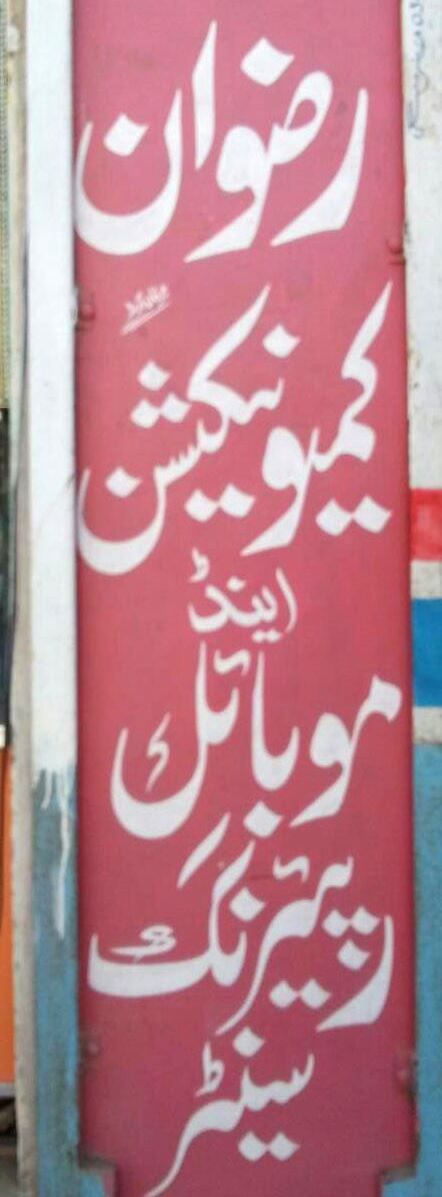 رضوان
کمیونیکیشن
اینڈ
موبائل
ریپئرنگ
سینٹر